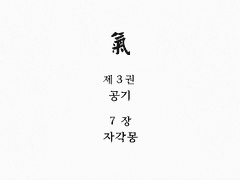 氣
제 3 권
공기
7 장
자각몽